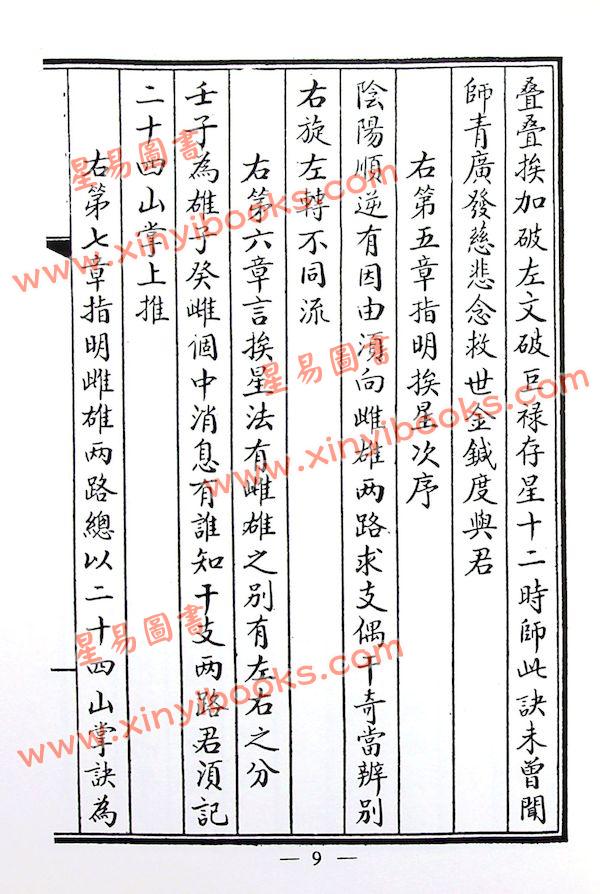 叠叠挨加破左文破巨禄存星十二時師此訣未曾聞
師青廣發慈悲念救世金鍼度與君
右第五章指明挨星次序
陰陽順逆有因由須向雌雄两路求支偶干奇當辨别
右旋左轉不同流
右第六章言挨星法有雌雄之别有左右之分
壬子為雄子癸雌個中消息有誰知干支两路君須記
二十四山掌上推
右第七章指明雌雄两路總以二十四山掌訣為
— 9 —
星易圖書
www.xinyibooks.com
星易圖書
www.xinyibooks.com
星易圖書
www.xinyibooks.com